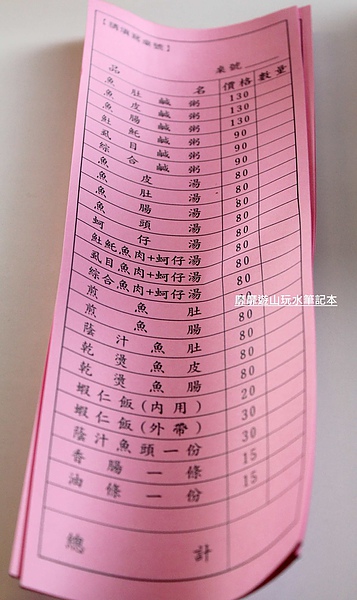 【請填寫桌號】
桌號
品名 價格 數量
魚肚鹹粥 130
魚皮鹹粥 130
魚腸鹹粥 130
𩵚魠鹹粥 90
虱目鹹粥 90
綜合鹹粥 90
魚皮湯 80
魚肚湯 80
魚腸湯 80
魚頭湯 80
蚵仔湯 80
𩵚魠魚肉+蚵仔湯 80
虱目魚肉+蚵仔湯 80
綜合魚肉+蚵仔湯 80
煎魚肚
煎魚腸 80
蔭汁魚肚 80
乾燙魚皮 80
乾燙魚腸 80
蝦仁飯(內用) 20
蝦仁飯(外帶) 30
蔭汁魚頭一份 30
香腸一條 15
油條一份 15
總計
遊山玩水筆記本